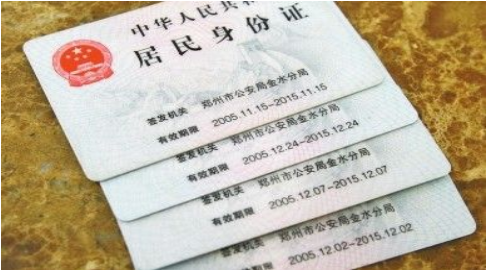 中华人民共和
居民身份证
签发机关 郑州市公安局金水分局
有效期限 2005.11.15-2015.11.15
签发机关 郑州市公安局金水分局
有效期限 2005.12.24-2015.12.24
签发机关 郑州市公安局金水分局
有效期限 2005.12.07-2015.12.07
签发机关 郑州市公安局金水分局
有效期限 2005.12.02-2015.12.02